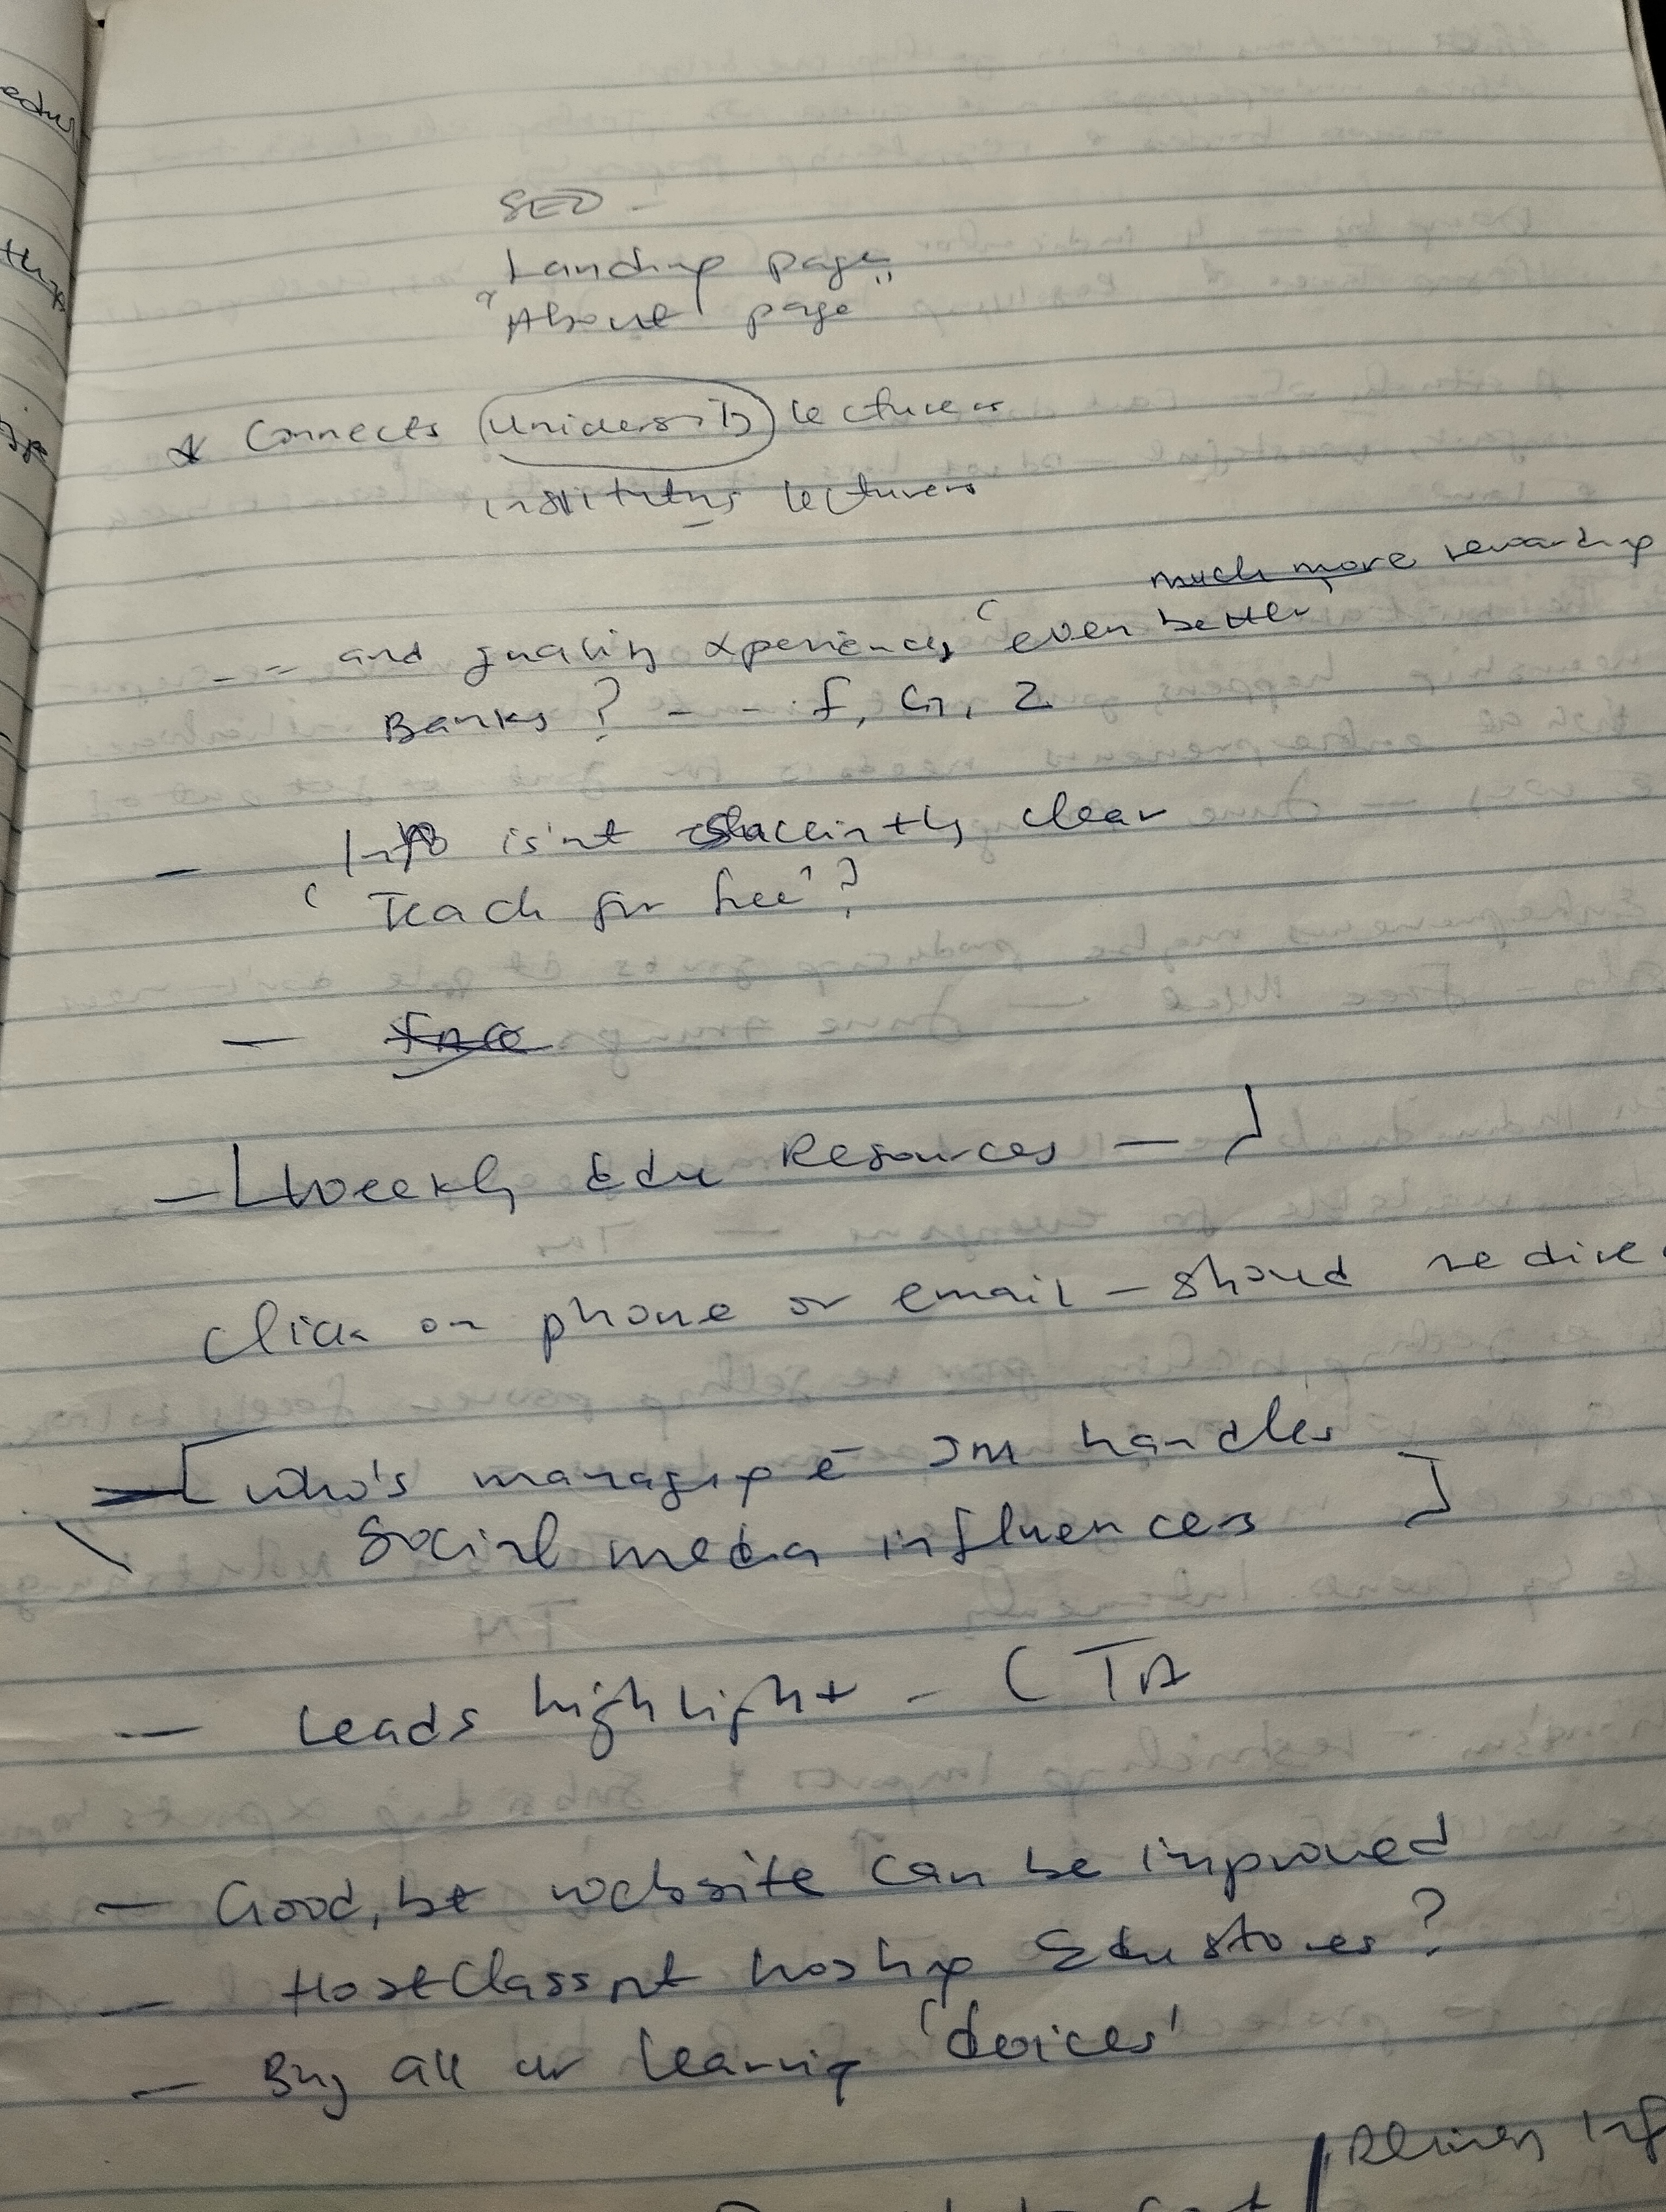 SEO -
Landing page
"About page"
* Connects University lecturers
institutns lecturers
much more rewarding
-- and quality xperiences, 'even better,
Banks? - - f, G, Z
- Info isn't succintly clear
'Teach for free'?
- free
- [Weekly Edu Resources - ]
Click on phone or email - should redirec
[Who's managing e- SM handles
Social media influencers ]
- Leads highlight - CTA
- Good, bt website can be improved
- HostClassnt hosting Edustores?
- Buy all ur learning 'devices'
Delivery Inf